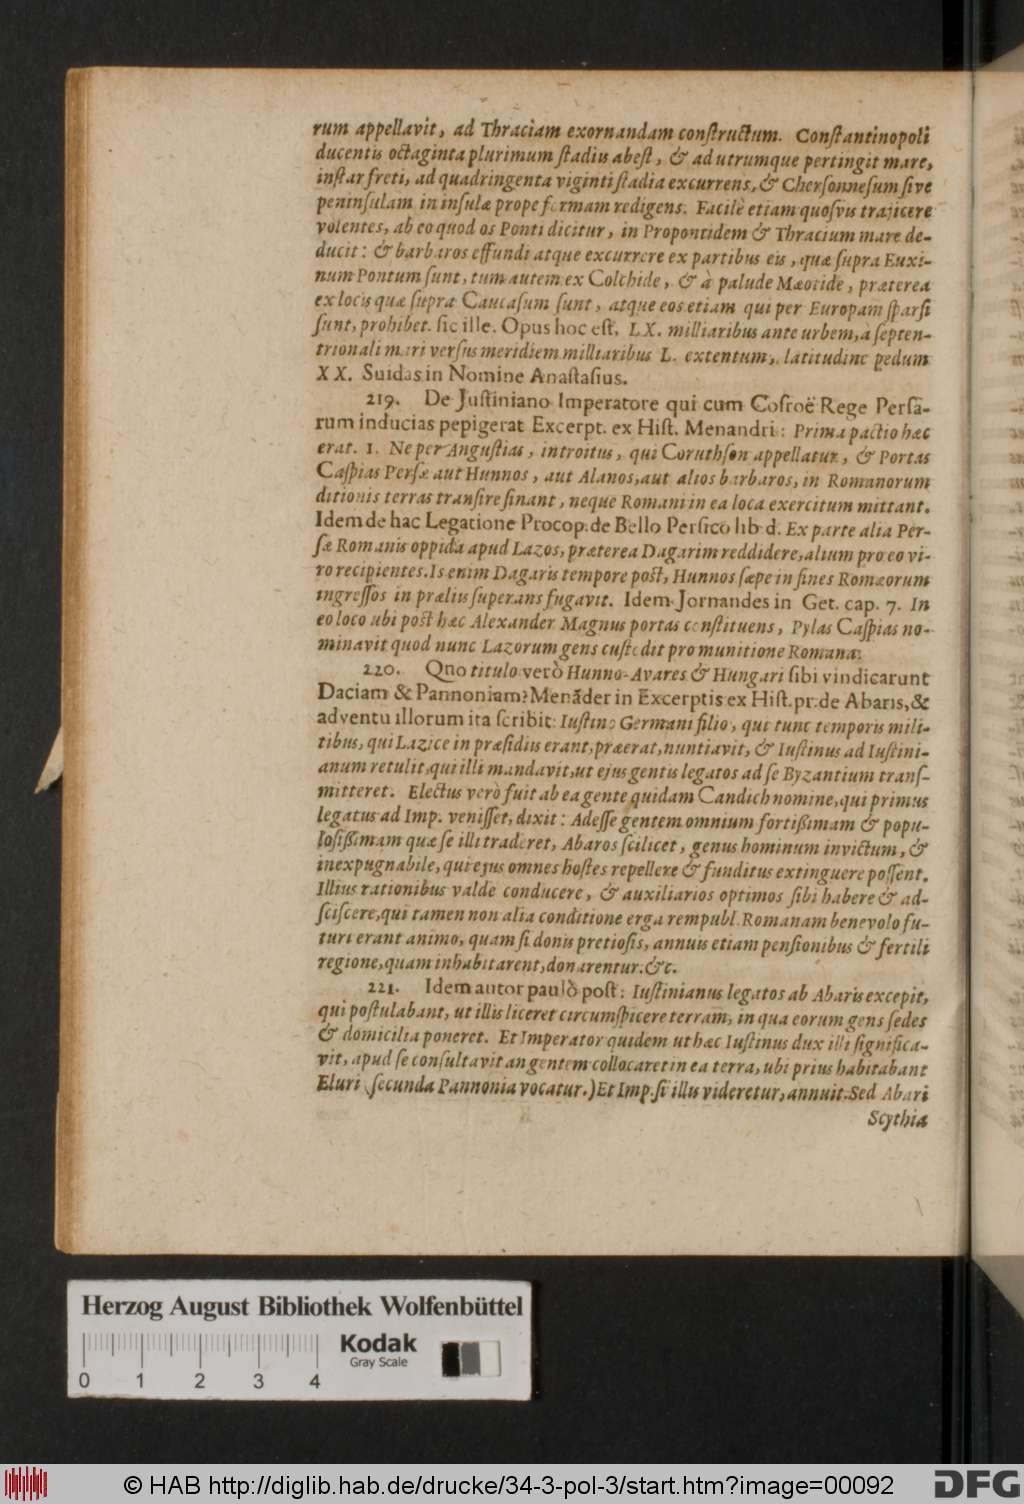 rum appellavit, ad Thraciam exornandam conſtructum. Conſtantinopoli
ducentis octaginta plurimum ſtadiis abeſt, & ad utrumque pertingit mare,
inſtar freti, ad quadringenta viginti ſtadia excurrens, & Cherſonneſum ſive
peninſulam in inſulæ prope formam redigens. Facilè etiam quoſvis trajicere
volentes, ab eo quod os Ponti dicitur, in Propontidem & Thracium mare de-
ducit: & barbaros effundi atque excurrere ex partibus eis, quæ ſupra Euxi-
num Pontum ſunt, tum autem ex Colchide, & à palude Mæotide, præterea
ex locis quæ ſupra Caucaſum ſunt, atque eos etiam qui per Europam ſparſi
ſunt, prohibet. ſic ille. Opus hoc eſt, LX. milliaribus ante urbem, a ſepten-
trionali mari verſus meridiem milliaribus L. extentum, latitudine pedum
XX. Suidas in Nomine Anaſtaſius.
219. De Juſtiniano Imperatore qui cum Coſroë Rege Perſa-
rum inducias pepigerat Excerpt. ex Hiſt. Menandri: Prima pactio hæc
erat. 1. Ne per Anguſtias, introitus, qui Coruthſon appellatur, & Portas
Caſpias Perſæ aut Hunnos, aut Alanos, aut alios barbaros, in Romanorum
ditionis terras tranſire ſinant, neque Romani in ea loca exercitum mittant.
Idem de hac Legatione Procop. de Bello Perſico lib. d. Ex parte alia Per-
ſæ Romanis oppida apud Lazos, præterea Dagarim reddidere, alium pro eo vi-
ro recipientes. Is enim Dagaris tempore poſt, Hunnos ſæpe in fines Romæorum
ingreſſos in præliis ſuperans fugavit. Idem Jornandes in Get. cap. 7. In
eo loco ubi poſt hæc Alexander Magnus portas conſtituens, Pylas Caſpias no-
minavit quod nunc Lazorum gens cuſtodit pro munitione Romana.
220. Quo titulo verò Hunno-Avares & Hungari ſibi vindicarunt
Daciam & Pannoniam? Menãder in Excerptis ex Hiſt. pr. de Abaris, &
adventu illorum ita ſcribit: Iuſtino Germani filio, qui tunc temporis mili-
tibus, qui Lazicæ in præſidiis erant, præerat, nuntiavit, & Iuſtinus ad Iuſtini-
anum retulit, qui illi mandavit, ut ejus gentis legatos ad ſe Byzantium tranſ-
mitteret. Electus verò fuit ab ea gente quidam Candich nomine, qui primus
legatus ad Imp. veniſſet, dixit: Adeſſe gentem omnium fortißimam & popu-
loſißimam quæ ſe illi traderet, Abaros ſcilicet, genus hominum invictum, &
inexpugnabile, qui ejus omnes hoſtes repellere & funditus extinguere poſſent.
Illius rationibus valde conducere, & auxiliarios optimos ſibi habere & ad-
ſciſcere, qui tamen non alia conditione erga rempubl. Romanam benevolo fu-
turi erant animo, quam ſi donis pretioſis, annuis etiam penſionibus & fertili
regione, quam inhabitarent, donarentur. &c.
221. Idem autor paulò poſt: Iuſtinianus legatos ab Abaris excepit,
qui poſtulabant, ut illis liceret circumſpicere terram, in qua eorum gens ſedes
& domicilia poneret. Et Imperator quidem ut hæc Iuſtinus dux illi ſignifica-
vit, apud ſe conſultavit an gentem collocaret in ea terra, ubi prius habitabant
Eluri (ſecunda Pannonia vocatur.) Et Imp. ſi illis videretur, annuit. Sed Abari
Scythiæ
Herzog August Bibliothek Wolfenbüttel
Kodak
Gray Scale
0 1 2 3 4
© HAB http://diglib.hab.de/drucke/34-3-pol-3/start.htm?image=00092
DFG